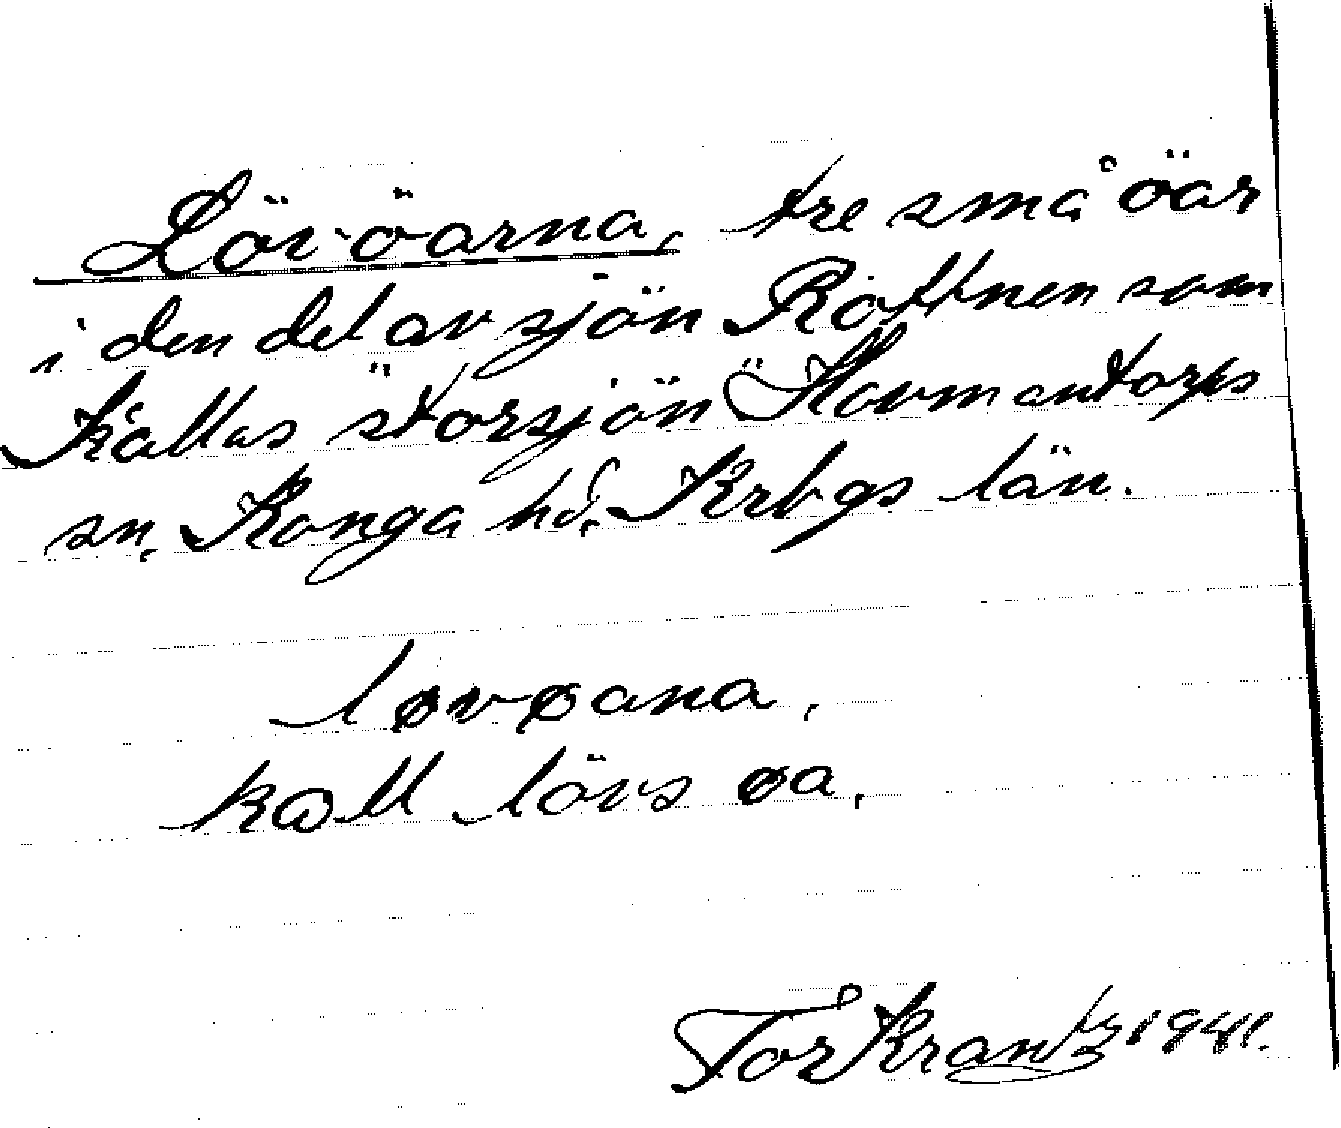 Löv-öarna, tre små öar
i den del av sjön Rottnen som
Kallas "storsjön" Hovmantorps
sn. Konga hd. Krbgs län.
løvøana,
kall lövs øa,
Tor Krantz 1941.